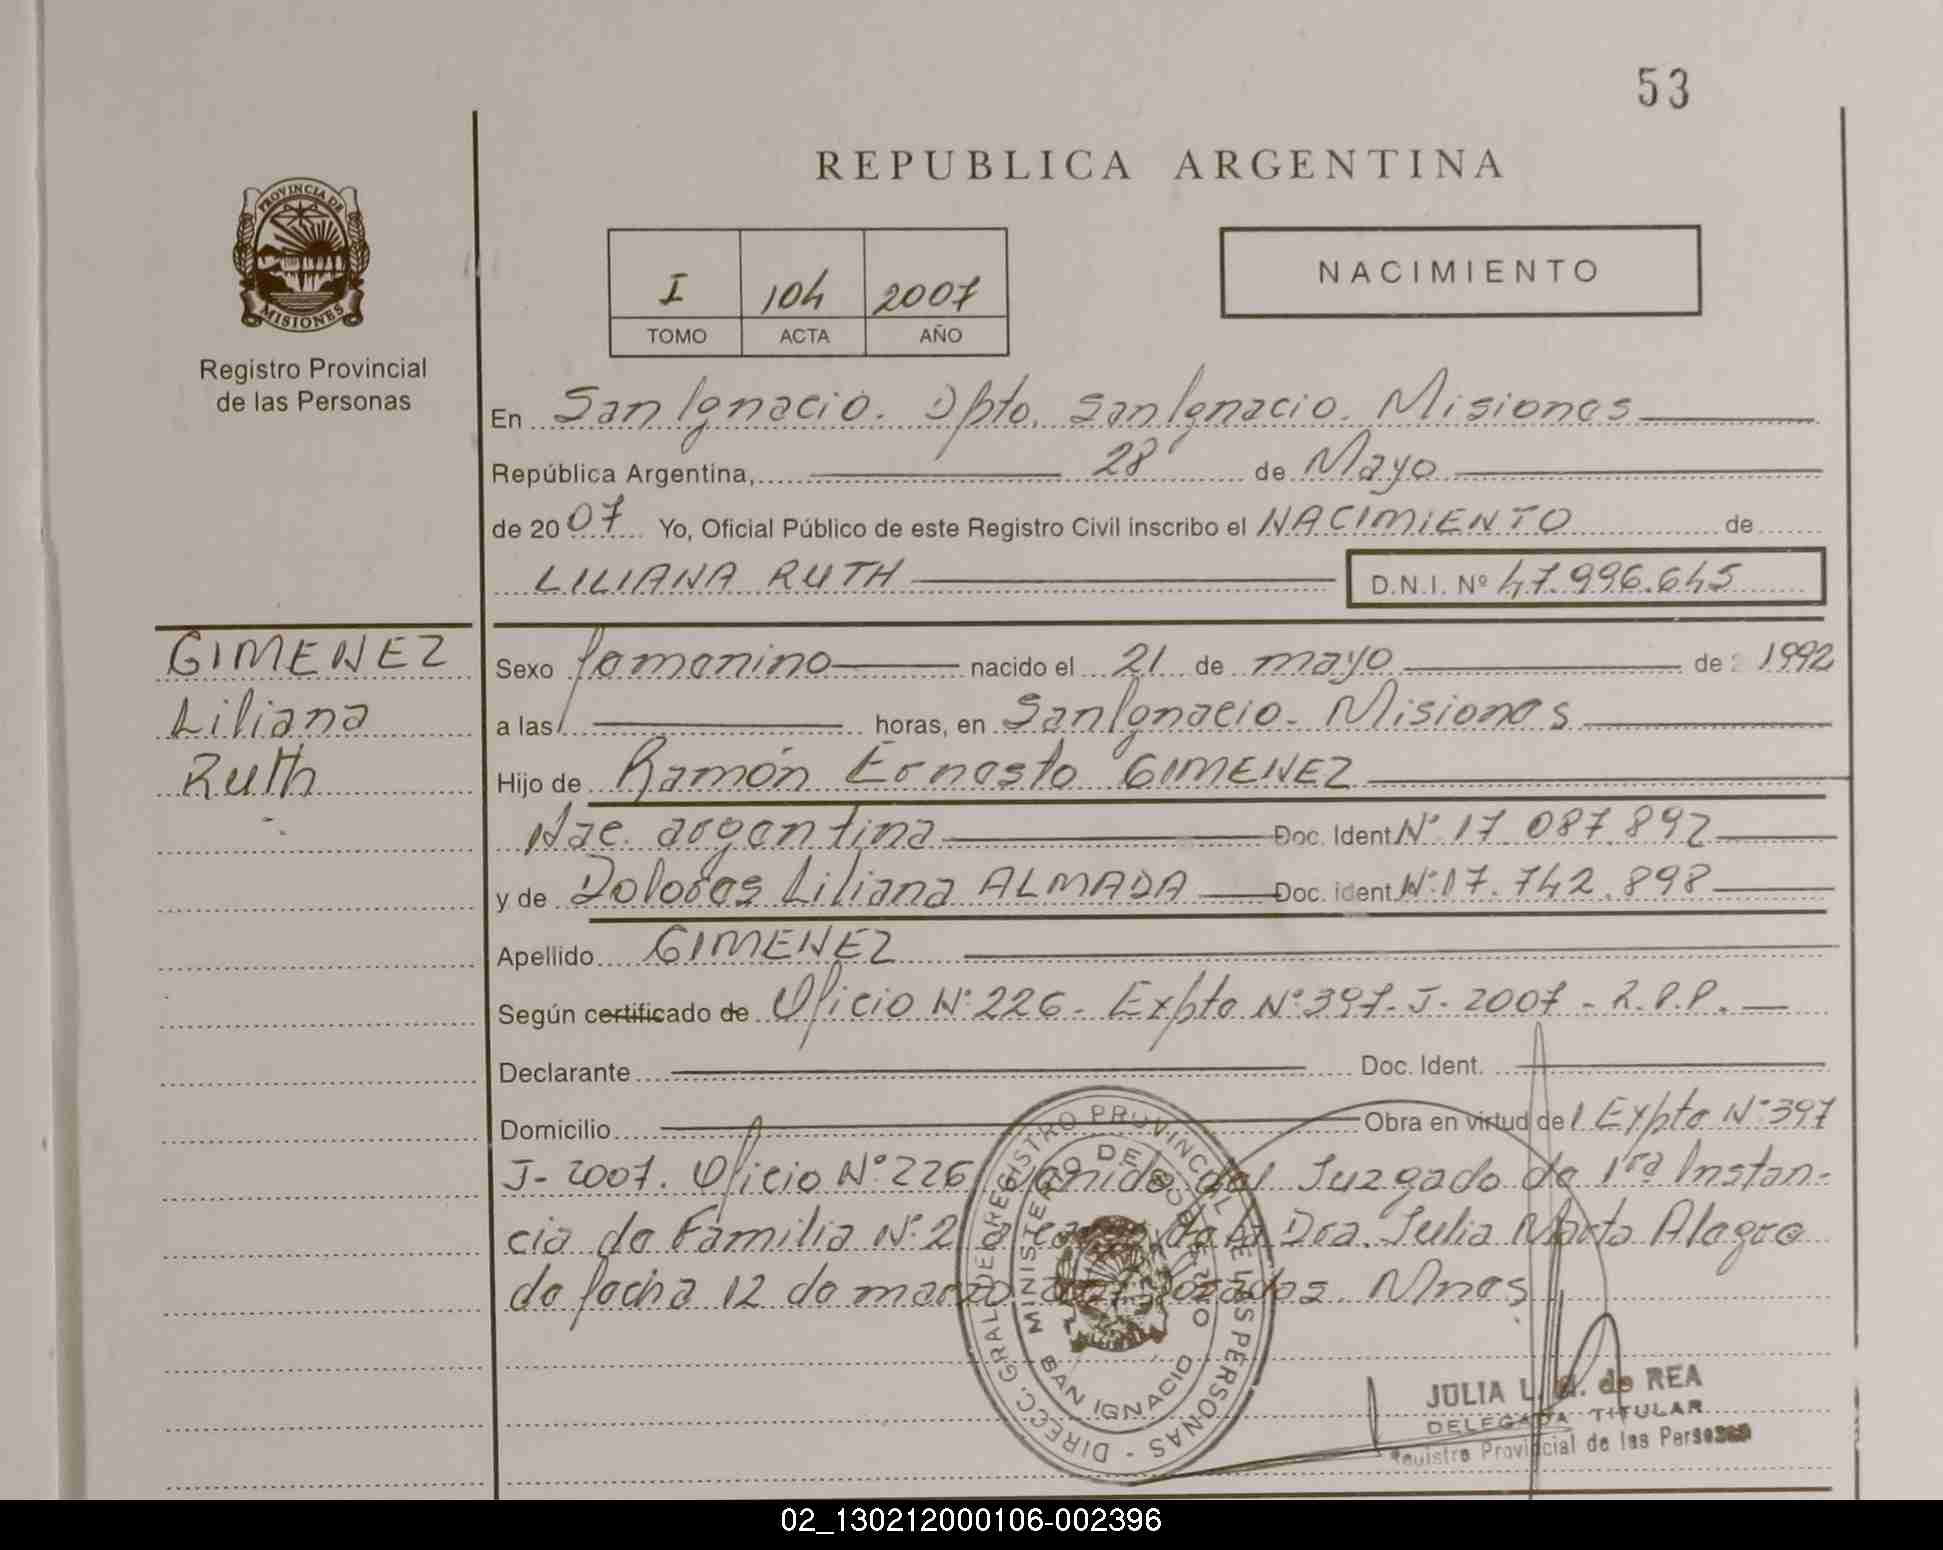 53
REPUBLICA ARGENTINA
PROVINCIA DE
MISIONES
Registro Provincial
de las Personas
I 104 2007
TOMO ACTA AÑO
NACIMIENTO
En San Ignacio. Dpto. San Ignacio. Misiones
República Argentina, 28 de Mayo
de 2007 Yo, Oficial Público de este Registro Civil inscribo el NACIMIENTO de
LILIANA RUTH D.N.I. Nº 47.996.645
GIMENEZ
Liliana
Ruth
Sexo femenino nacido el 21 de mayo de 1992
a las horas, en San Ignacio. Misiones
Hijo de Ramón Ernesto GIMENEZ
Nac. argentina Doc. Ident. Nº 17.087.892
y de Dolores Liliana ALMADA Doc. ident. Nº 17.742.898
Apellido GIMENEZ
Según certificado de Oficio Nº 226 - Expte Nº 397-J-2007 - R.P.P.
Declarante Doc. Ident.
Domicilio Obra en virtud de Expte Nº 397
J-2007. Oficio Nº 226 venido del Juzgado de 1ra Instan-
cia de Familia Nº 2 a cargo de la Dra. Julia Marta Alegre
de fecha 12 de marzo Posadas. Mnes
DIRECC. GRAL DE REGISTRO PROVINCIAL DE LAS PERSONAS -
MINISTERIO DE GOBIERNO
SAN IGNACIO
JULIA L. G. de REA
DELEGADA TITULAR
Registro Provincial de las Personas
02_130212000106-002396